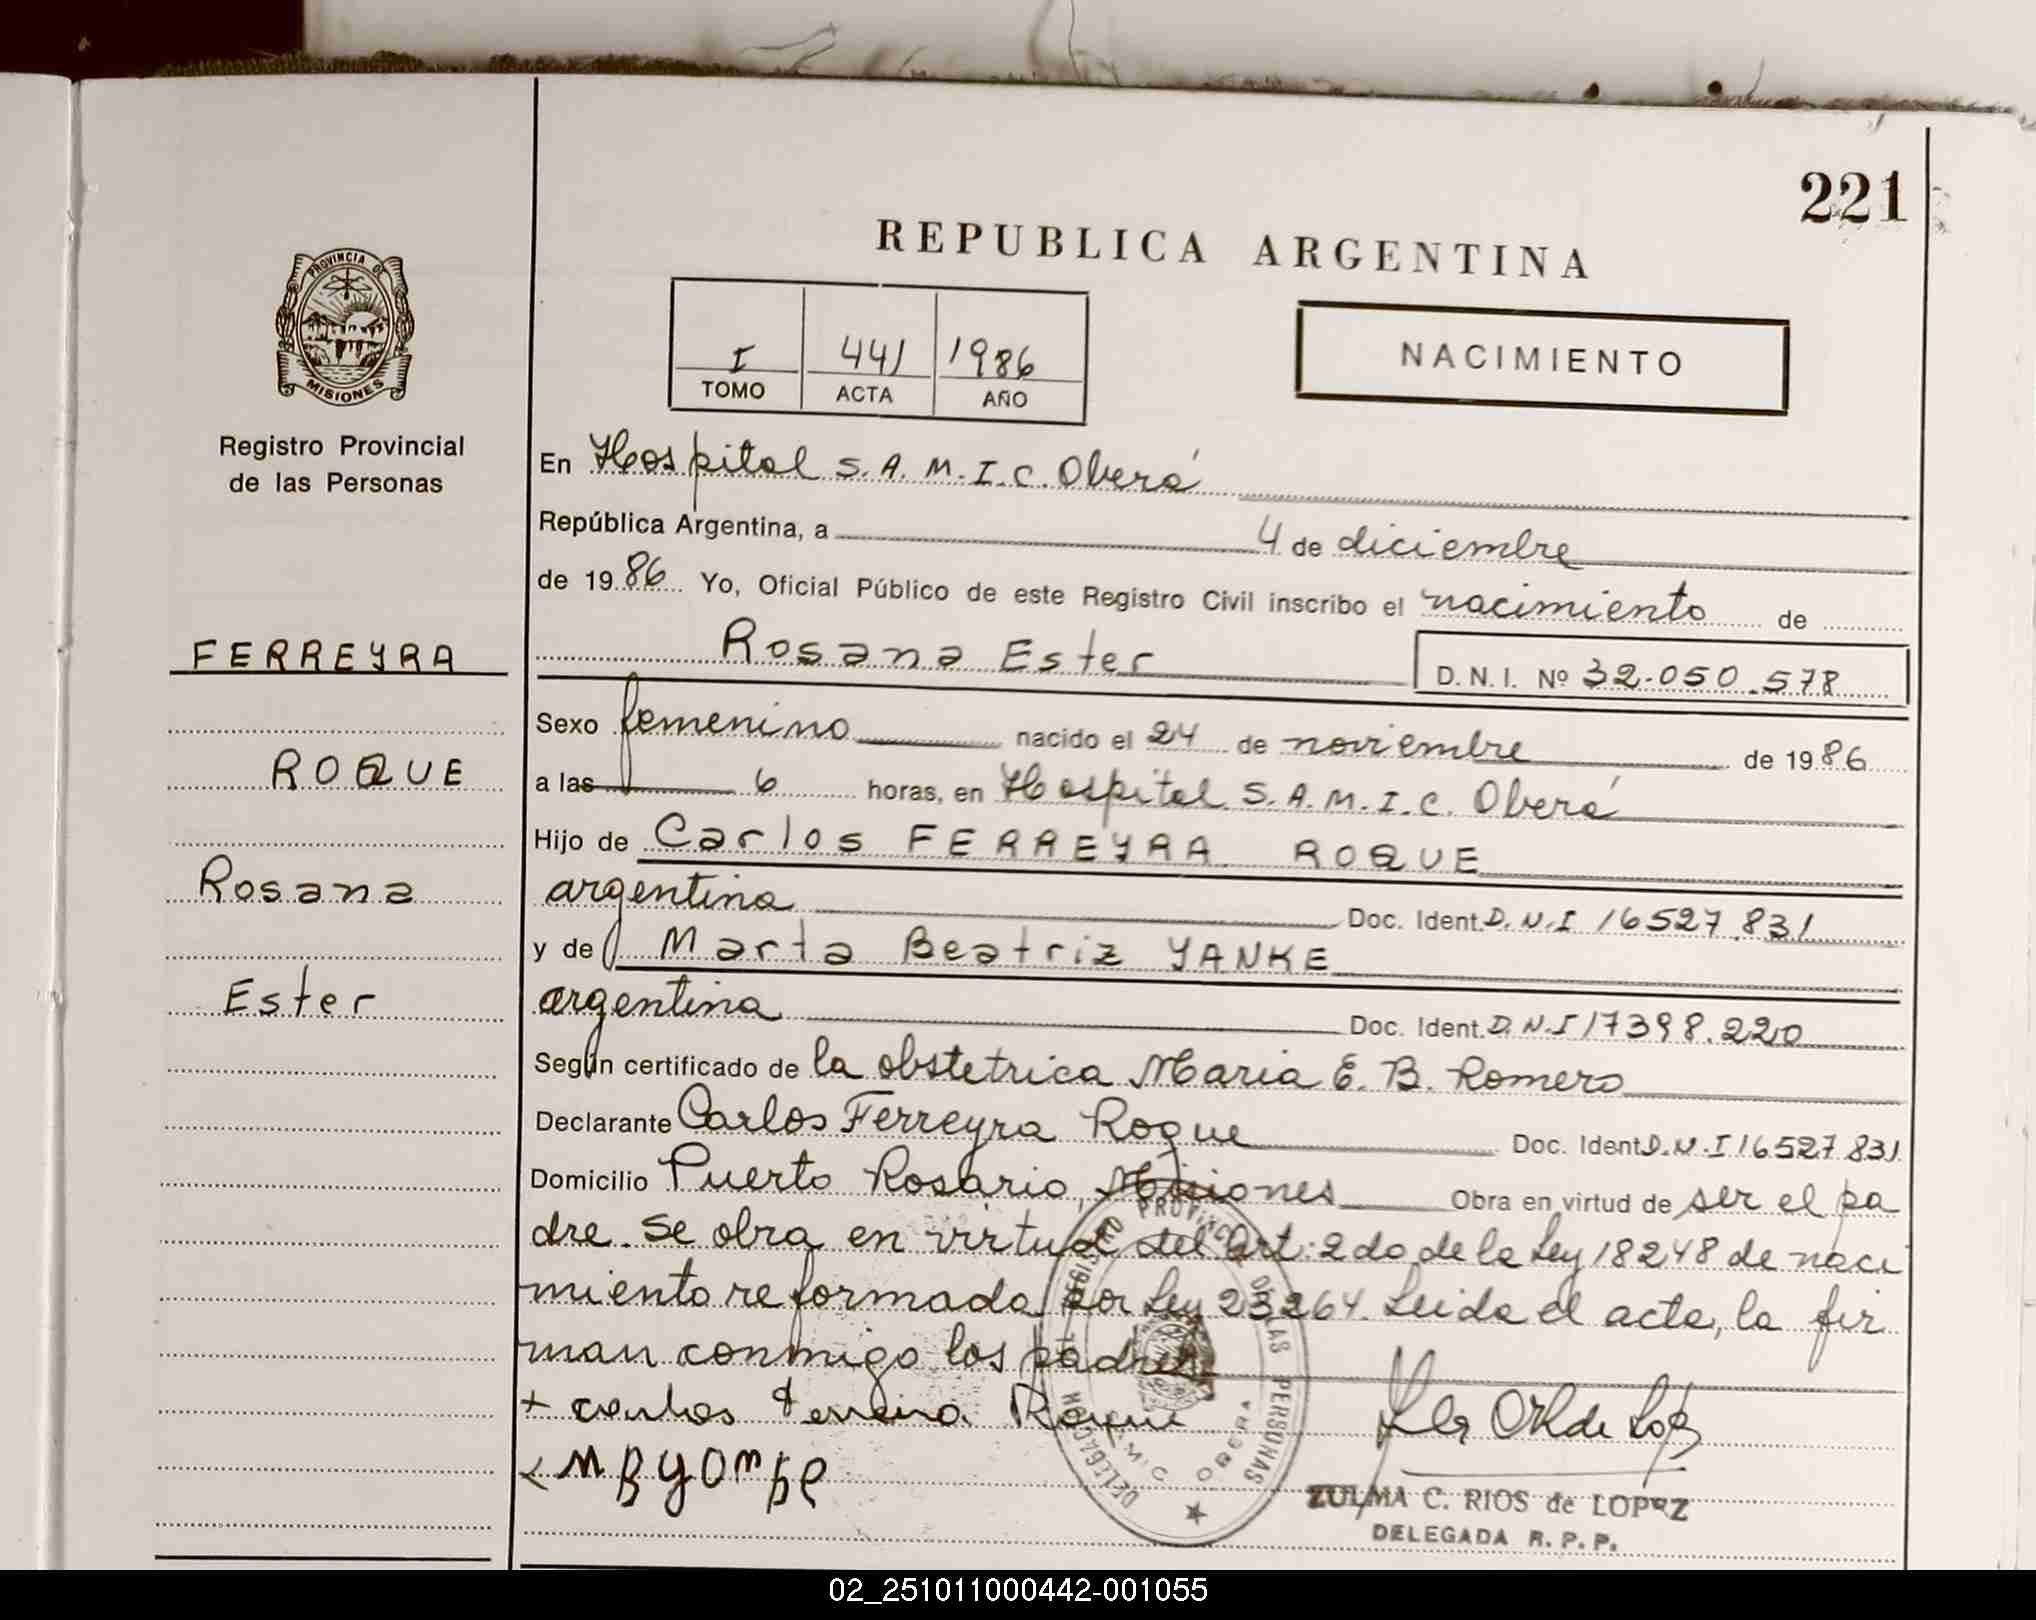 221
REPUBLICA ARGENTINA
PROVINCIA DE
MISIONES
I 441 1986
TOMO ACTA AÑO
NACIMIENTO
Registro Provincial
de las Personas
FERREYRA
ROQUE
Rosana
Ester
En Hospital S.A.M.I.C. Oberá
República Argentina, a 4 de diciembre
de 1986 Yo, Oficial Público de este Registro Civil inscribo el nacimiento de
Rosana Ester D.N.I. Nº 32.050.578
Sexo femenino nacido el 24 de noviembre de 1986
a las 6 horas, en Hospital S.A.M.I.C. Oberá
Hijo de Carlos FERREYRA ROQUE
argentina Doc. Ident. D.N.I 16527.831
y de Marta Beatriz YANKE
argentina Doc. Ident. D.N.I 17398.220
Según certificado de la obstetrica Maria E. B. Romero
Declarante Carlos Ferreyra Roque Doc. Ident. D.N.I 16527.831
Domicilio Puerto Rosario, Misiones Obra en virtud de ser el pa
dre. Se obra en virtud del Art: 2do de la Ley 18248 de naci
miento reformada por Ley 23264. Leida el acta, la fir
man conmigo los padres
+ carlos Ferreira Roque
REGISTRO PROVINCIAL DE LAS PERSONAS
DELEGACION
OBERA
ZULMA C. RIOS de LOPEZ
DELEGADA R.P.P.
02_251011000442-001055